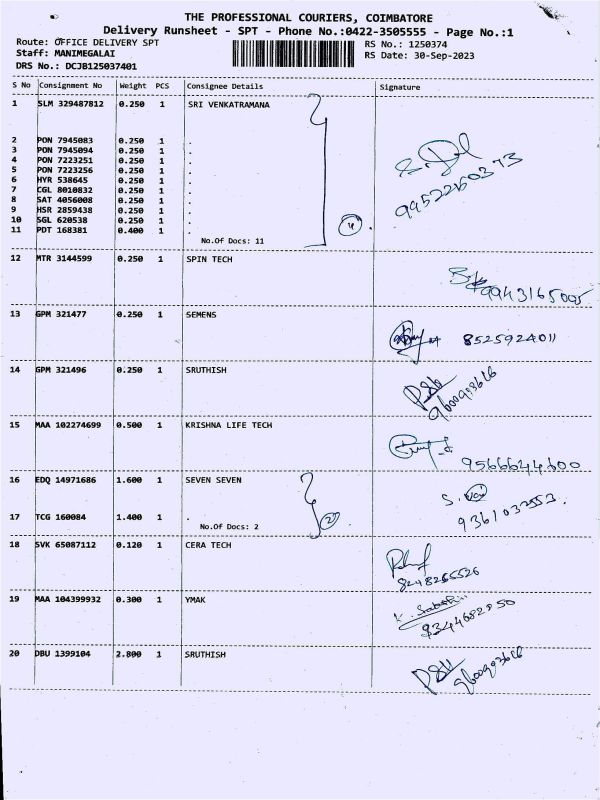 THE PROFESSIONAL COURIERS, COIMBATORE
Delivery Runsheet - SPT - Phone No.:0422-3505555 - Page No.:1
Route: OFFICE DELIVERY SPT RS No.: 1250374
Staff: MANIMEGALAI RS Date: 30-Sep-2023
DRS No.: DCJB125037401
S No Consignment No Weight PCS Consignee Details Signature
1 SLM 329487812 0.250 1 SRI VENKATRAMANA
2 PON 7945083 0.250 1 .
3 PON 7945094 0.250 1 .
4 PON 7223251 0.250 1 .
5 PON 7223256 0.250 1 .
6 HYR 538645 0.250 1 .
7 CGL 8010832 0.250 1 .
8 SAT 4056008 0.250 1 .
9 HSR 2859438 0.250 1 .
10 SGL 620538 0.250 1 .
11 PDT 168381 0.400 1 .
No.Of Docs: 11
12 MTR 3144599 0.250 1 SPIN TECH
13 GPM 321477 0.250 1 SEMENS
8525924011
14 GPM 321496 0.250 1 SRUTHISH
15 MAA 102274699 0.500 1 KRISHNA LIFE TECH
9566644600
16 EDQ 14971686 1.600 1 SEVEN SEVEN
17 TCG 160084 1.400 1 .
No.Of Docs: 2 2
18 SVK 65087112 0.120 1 CERA TECH
8248265526
19 MAA 104399932 0.300 1 YMAK
20 DBU 1399104 2.800 1 SRUTHISH